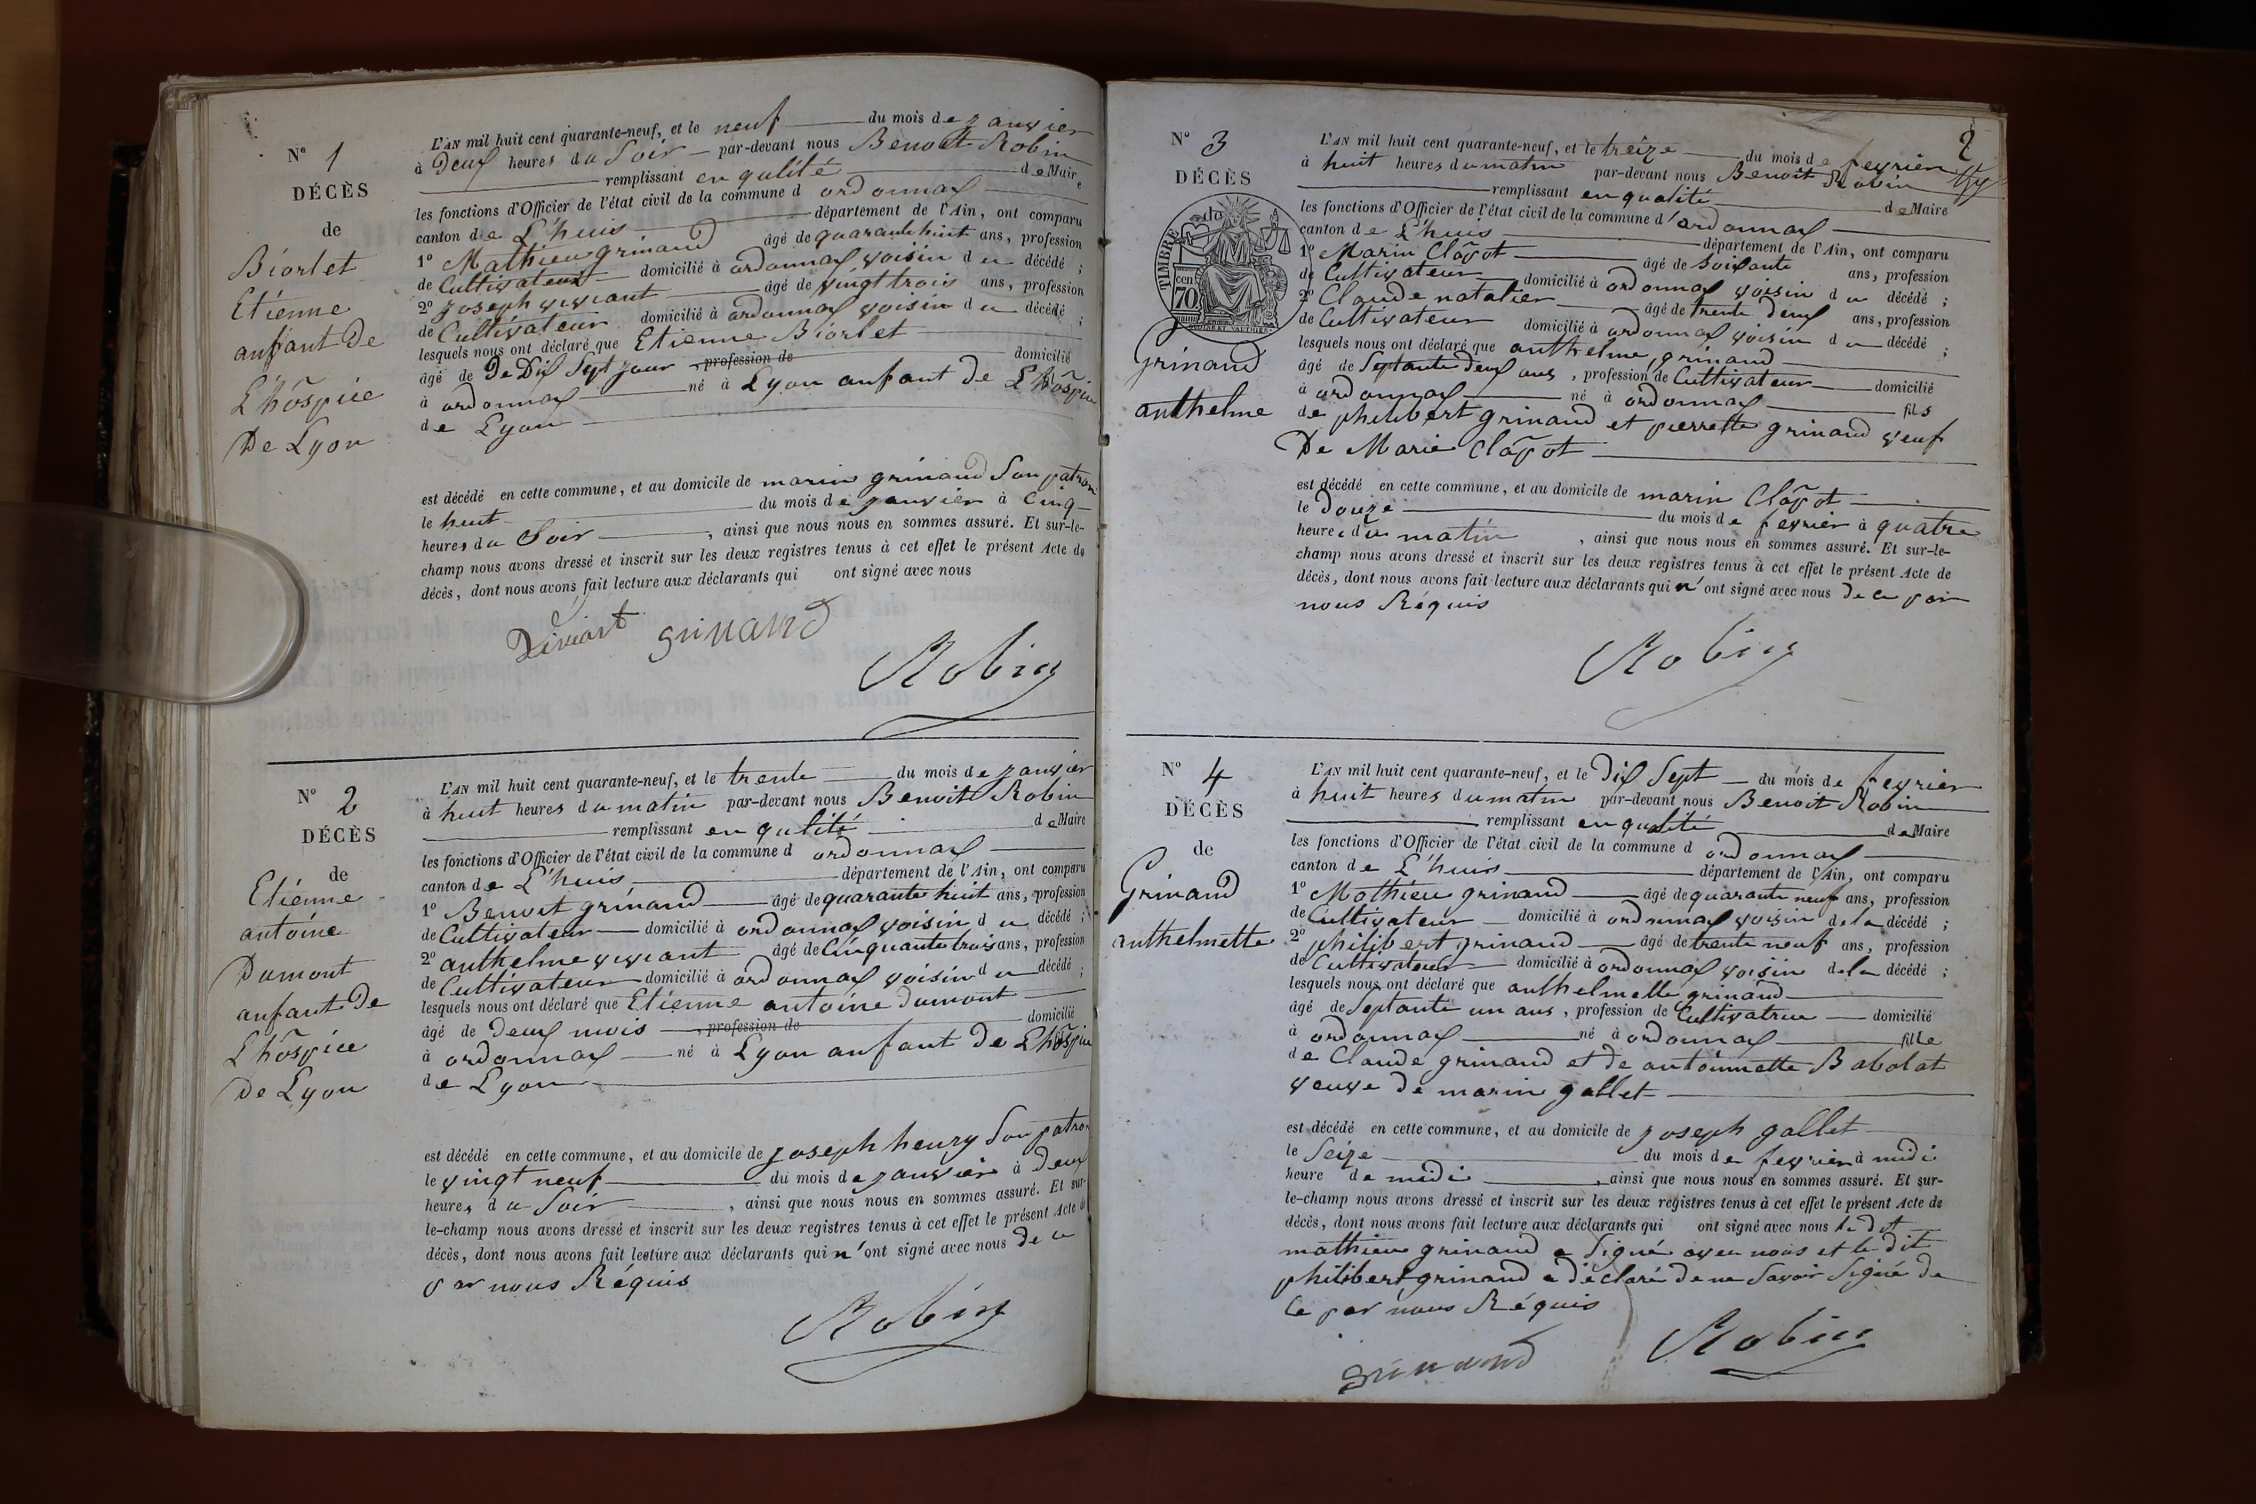 N° 1
DÉCÈS
de
Biorlet
Etienne
anfant De
L'hôspice
De Lyon
L'AN mil huit cent quarante-neuf, et le neuf du mois de janvier
à Deux heures du Soir par-devant nous Benoit Robin
remplissant en qulité de Maire
les fonctions d'Officier de l'état civil de la commune d ordonnax
canton de L'huis département de l'Ain, ont comparu
1° Mathieu grinand âgé de quarante huit ans, profession
de Cultivateur domicilié à ordonnax voisin du décédé ;
2° Joseph viviant âgé de vingt trois ans, profession
de Cultivateur domicilié à ordonnax voisin du décédé ;
lesquels nous ont déclaré que Etienne Biorlet
âgé de De Dix Sept jour , profession de domicilié
à ordonnax né à Lyon anfant de L'hôspice
de Lyon
est décédé en cette commune, et au domicile de marin grinand Son patron
le huit du mois de janvier à Cinq
heures du Soir , ainsi que nous nous en sommes assuré. Et sur-le-
champ nous avons dressé et inscrit sur les deux registres tenus à cet effet le présent Acte de
décès, dont nous avons fait lecture aux déclarants qui ont signé avec nous
Viviant grinand
Robin
N° 2
DÉCÈS
de
Etienne
antoine
Dumont
anfant De
L'hôspice
De Lyon
L'AN mil huit cent quarante-neuf, et le trente du mois de janvier
à huit heures du matin par-devant nous Benoit Robin
remplissant en qulité de Maire
les fonctions d'Officier de l'état civil de la commune d ordonnax
canton de L'huis département de l'Ain, ont comparu
1° Benoit grinand âgé de quarante huit ans, profession
de Cultivateur domicilié à ordonnax voisin du décédé ;
2° anthelme viviant âgé de Cinquante trois ans, profession
de Cultivateur domicilié à ordonnax voisin du décédé ;
lesquels nous ont déclaré que Etienne antoine dumont
âgé de deux mois , profession de domicilié
à ordonnax né à Lyon anfant de L'hôspice
de Lyon
est décédé en cette commune, et au domicile de Joseph henry Son patron
le vingt neuf du mois de janvier à deux
heures du Soir , ainsi que nous nous en sommes assuré. Et sur-
le-champ nous avons dressé et inscrit sur les deux registres tenus à cet effet le présent Acte de
décès, dont nous avons fait lecture aux déclarants qui n'ont signé avec nous De ce
par nous Réquis
Robin
2
N° 3
DÉCÈS
TIMBRE
70 cen
Grinand
anthelme
L'AN mil huit cent quarante-neuf, et le treize du mois de fevrier
à huit heures du matin par-devant nous Benoit Robin
remplissant en qualité de Maire
les fonctions d'Officier de l'état civil de la commune d'ordonnax
canton de L'huis département de l'Ain, ont comparu
1° Marin Clâpot âgé de Soixante ans, profession
de Cultivateur domicilié à ordonnax voisin du décédé ;
2° Claude natalier âgé de trente deux ans, profession
de Cultivateur domicilié à ordonnax voisin du décédé ;
lesquels nous ont déclaré que anthelme grinand
âgé de Septante deux ans , profession de Cultivateur domicilié
à ordonnax né à ordonnax fils
de philibert grinand et pierrette grinand veuf
De Marie Clâpot
est décédé en cette commune, et au domicile de marin Clâpot
le Douze du mois de fevrier à quatre
heures du matin , ainsi que nous nous en sommes assuré. Et sur-le-
champ nous avons dressé et inscrit sur les deux registres tenus à cet effet le présent Acte de
décès, dont nous avons fait lecture aux déclarants qui n'ont signé avec nous de ce par
nous Réquis
Robin
N° 4
DÉCÈS
de
Grinand
anthelmette
L'AN mil huit cent quarante-neuf, et le Dix Sept du mois de fevrier
à huit heures du matin par-devant nous Benoit Robin
remplissant en qualité de Maire
les fonctions d'Officier de l'état civil de la commune d ordonnax
canton de L'huis département de l'Ain, ont comparu
1° Mathieu grinand âgé de quarante neuf ans, profession
de Cultivateur domicilié à ordonnax voisin de la décédé ;
2° philibert grinand âgé de trente neuf ans, profession
de Cultivateur domicilié à ordonnax voisin de la décédé ;
lesquels nous ont déclaré que anthelmette grinand
âgé de Septante un ans , profession de Cultivatrice domicilié
à ordonnax né à ordonnax fille
de Claude grinand et de antoinnette Babolat
veuve de marin gallet
est décédé en cette commune, et au domicile de Joseph gallet
le Seize du mois de fevrier à midi
heure de midi , ainsi que nous nous en sommes assuré. Et sur-
le-champ nous avons dressé et inscrit sur les deux registres tenus à cet effet le présent Acte de
décès, dont nous avons fait lecture aux déclarants qui ont signé avec nous le dit
mathieu grinand a Signé avec nous et le dit
philibert grinand a déclaré de ne Savoir Signé de
Ce par nous Réquis
grinand Robin